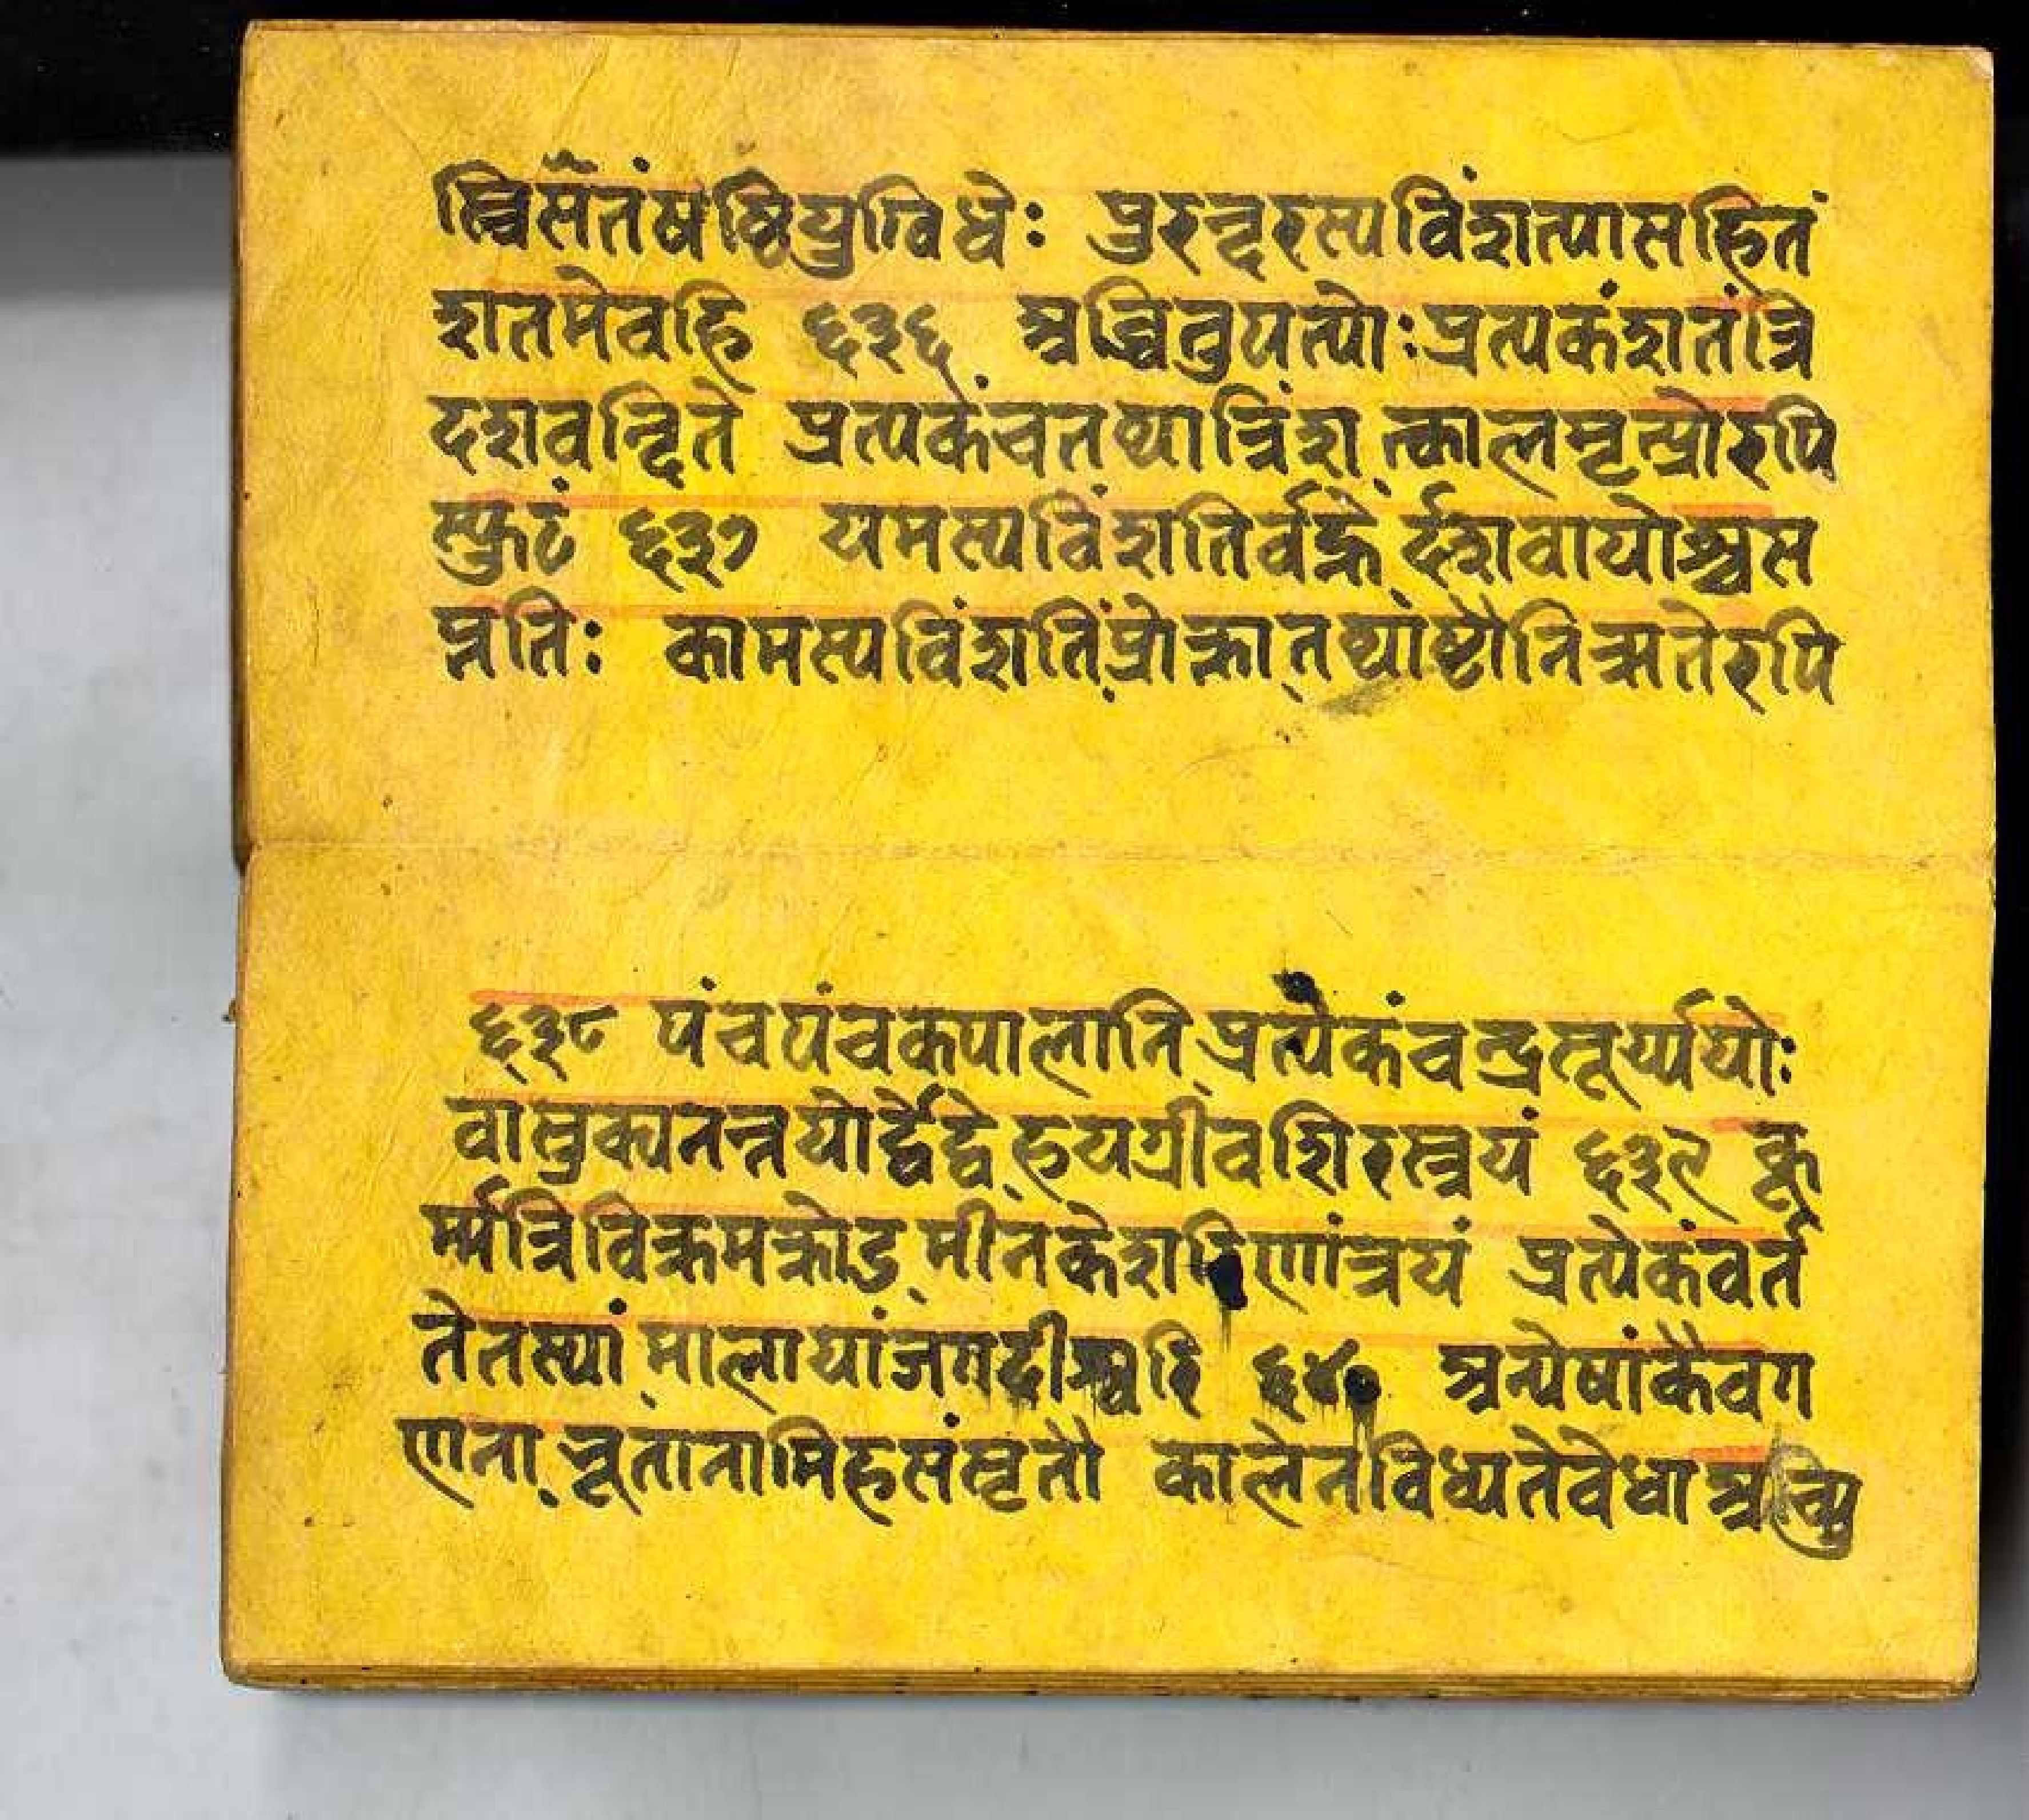 स्त्रिसैतंषष्ठियुग्विधेः पुरन्दरस्यविंशत्यासहितं
शतमेवहि ६३६ अब्धितुपत्योःप्रत्यकंशतंत्रि
दशवन्दिते प्रत्यकंचतथात्रिंश त्कालमृत्य्रोरपि
स्फुटं ६३७ यमस्यविंशतिर्वह्ने र्द्दशवायोश्चस
प्नतिः कामस्यविंशतिंप्रोक्ता तथांष्टौनिऋतेरपि
६३८ पंचपंचकपालानि प्रत्येकंचन्द्रसूर्य्ययोः
वासुक्यनन्तयोर्द्वेद्वे हयग्रीवशिरस्त्रयं ६३९ कू
र्म्मत्रिविक्रमक्रोड मीनकेशरिणांत्रयं प्रत्येकंवर्त
तेतस्यां मालायांजगदीश्वरि ६४० अन्येषांकैवग
णना भूतानामिहसंसृतौ कालेनविध्यतेवेधाअ